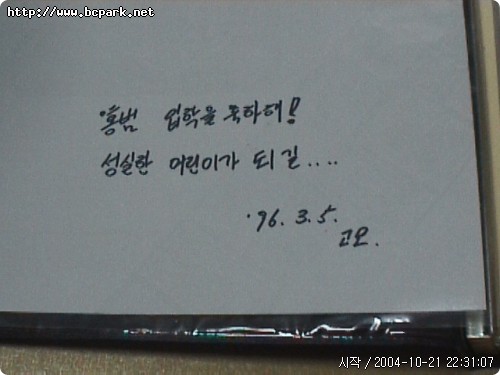 http://www.bcpark.net
홍범 입학을 축하해!
성실한 어린이가 되길....
'96. 3. 5.
고모.
시작 / 2004-10-21 22:31:07